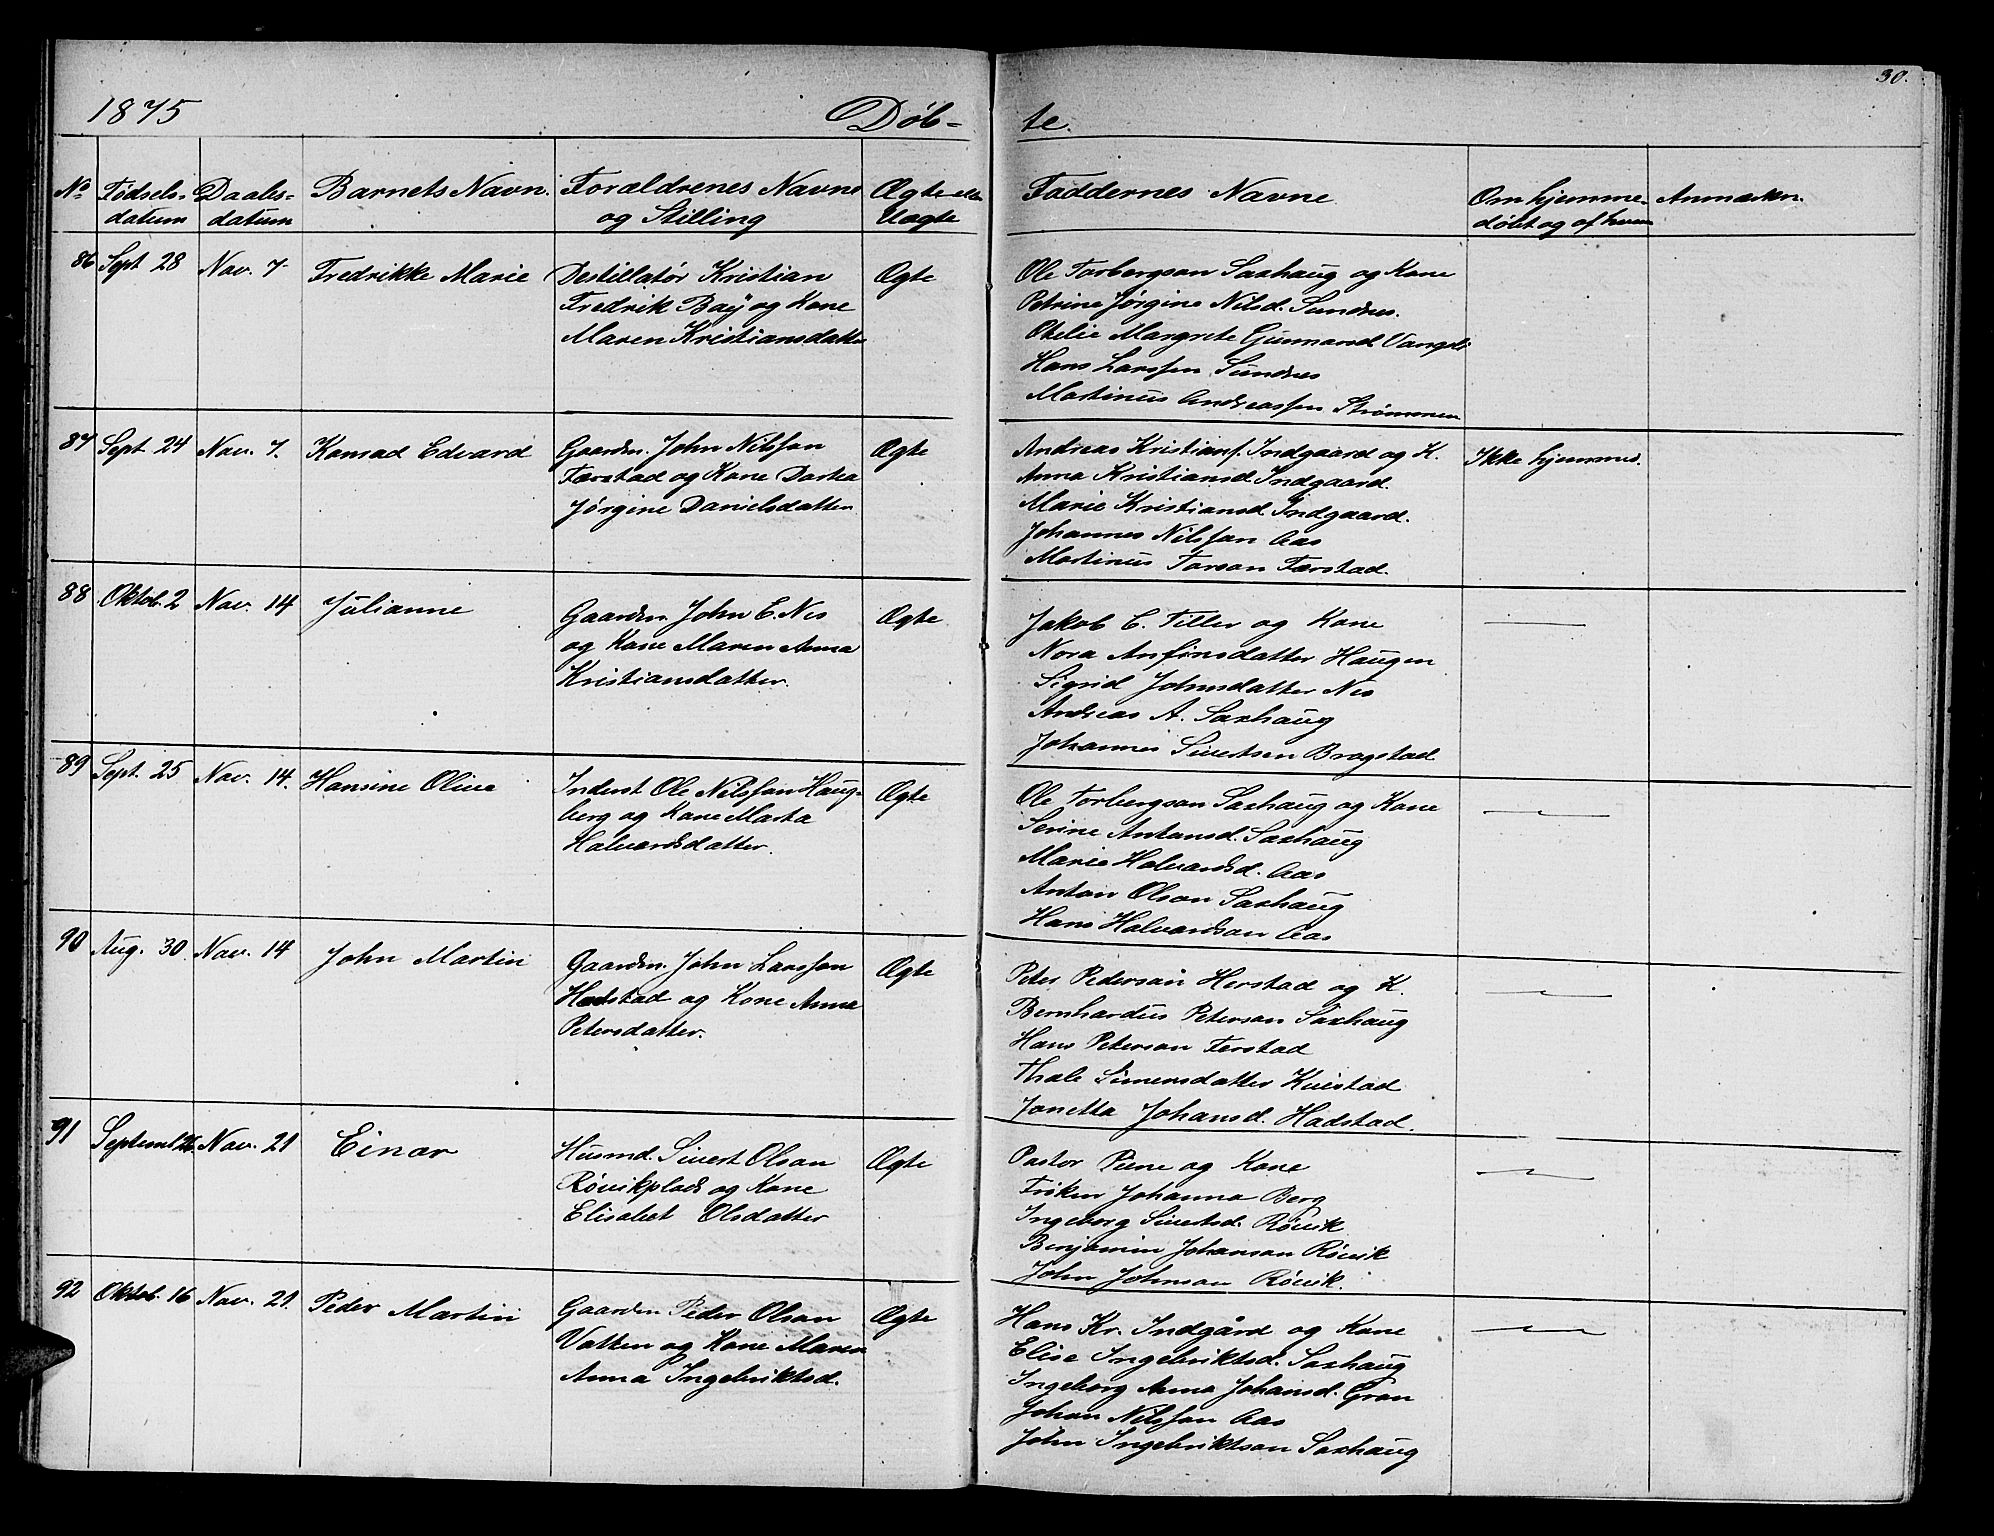 30.
1875 Døb- te.
No Fødsels- Daabs- Barnets Navn. Forældrenes Navne Ægte eller Faddernes Navne Om hjemme- Anmærkn.
datum datum og Stilling Uægte døbt og af hvem
86 Sept 28 Nov. 7 Fredrikke Marie Destillatør Kristian Ægte
Fredrik Baÿ og Kone
Maren Kristiansdatter
Ole Torbergsen Saxhaug og Kone
Petrine Jørgine Nilsd. Sundnes.
Otelie Margrete Gunnarsd.
Hans Larssen Sundnes
Martinus Andreassen Strømmen
87 Sept 24 Nov. 7. Konrad Edvard Gaardm. John Nilssen Ægte
Færstad og Kone Dortea
Jørgine Danielsdatter
Andreas Kristians. Indgaard og K. Ikke hjemmed.
Anna Kristiansd. Indgaard.
Marie Kristiansd. Indgaard.
Johannes Nilssen Aas
Martinus Torsen Færstad.
88 Oktob. 2 Nov. 14 Julianne Gaardm. John E. Nes Ægte
og Kone Maren Anna
Kristiansdatter.
Jakob E. Tiller og Kone
Nora Anfinsdatter Haugen
Sigrid Johnsdatter Nes
Andreas A. Saxhaug
Johannes Sivertsen Bragstad
89 Sept. 25 Nov. 14. Hansine Oline Inderst Ole Nilssen Haug- Ægte
berg og Kone Marta
Halvardsdatter.
Ole Torbergsen Saxhaug og Kone
Serine Antonsd. Saxhaug
Marie Halvardsd. Aas
Anton Olsen Saxhaug
Hans Halvardsen Aas
90 Aug. 30 Nov. 14 John Martin Gaardm. John Larssen Ægte
Hadstad og Kone Anna
Petersdatter.
Peter Pedersen Herstad og K.
Bernhardus Petersen Saxhaug
Hans Petersen Ferstad
Thale Simensdatter Kvistad
Jonetta Johansd. Hadstad.
91 Septemb. Nov. 21 Einar Husmd. Sivert Olsen Ægte
Røvikplads og Kone
Elisabet Olsdatter
Pastor Piene og Kone
Frøken Johanna Berg
Ingeborg Sivertsd. Røvik
Benjamin Johansen Røvik
John Johnsen Røvik.
92 Oktob. 16 Nov. 21. Peder Martin Gaardm. Peder Olsen Ægte
Vatten og Kone Maren
Anna Ingebriktsd.
Hans Kr. Indgård og Kone
Elise Ingebriktsd. Saxhaug
Ingeborg Anna Johansd. Gran
Johan Nilssen Aas
John Ingebriktsen Saxhaug